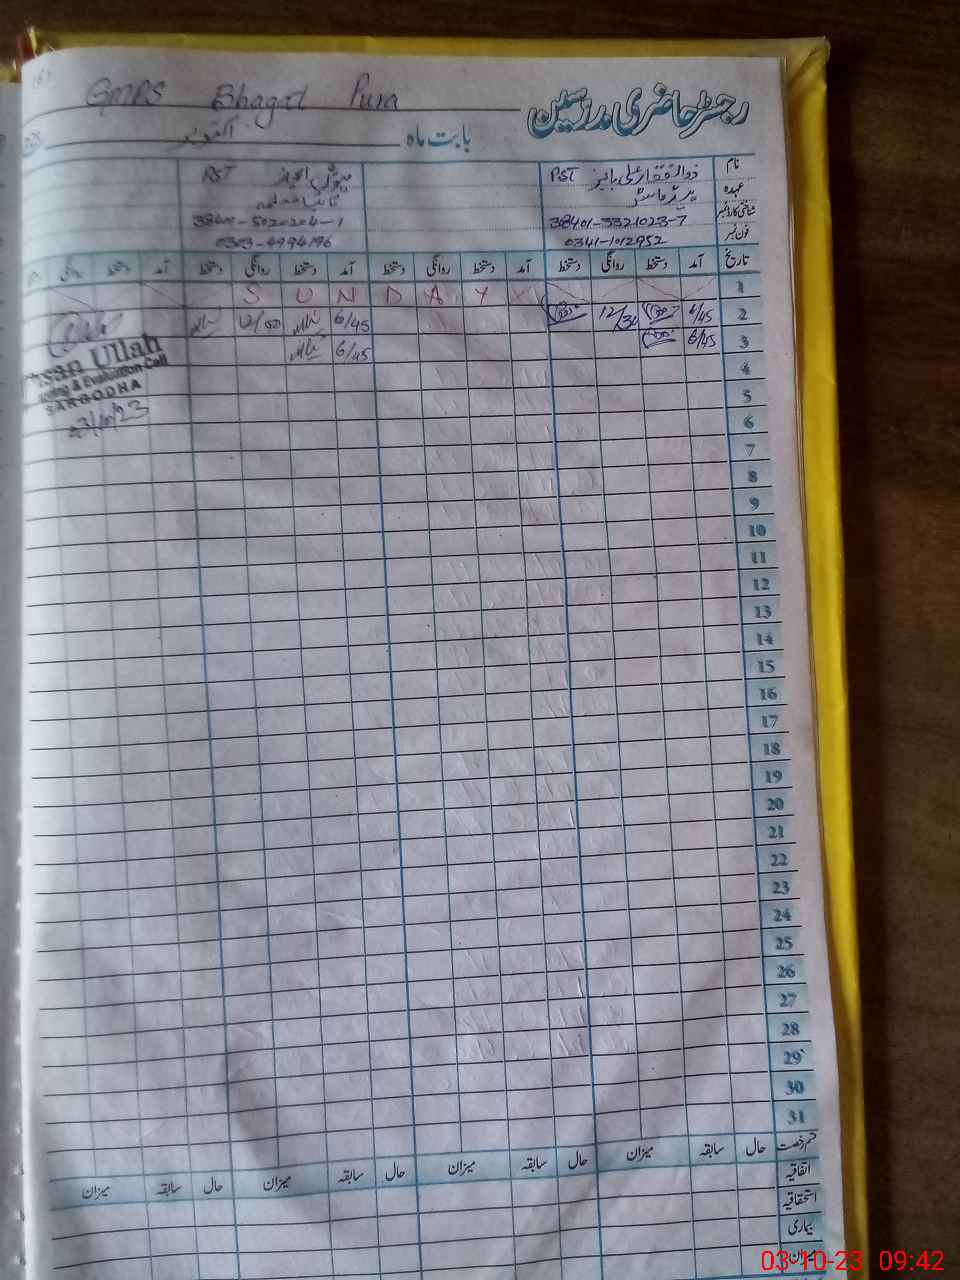 GMPS Bhagat Pura
رجسٹر حاضری مدرسین
بابت ماہ اکتوبر
نام
PST
PST
عہدہ
ہیڈ ماسٹر
شناختی کارڈ نمبر
38401-3321023-7
38401-5020204-1
فون نمبر
0341-1012952
0303-4994196
تاریخ آمد دستخط روانگی دستخط آمد دستخط روانگی دستخط آمد دستخط روانگی دستخط آمد دستخط روانگی
1 S U N D A Y
2 6/45 12/30 6/45 12/00
3 6/45 6/45
4
5
6
7
8
9
10
11
12
13
14
15
16
17
18
19
20
21
22
23
24
25
26
27
28
29
30
31
قسم رخصت حال سابقہ میزان حال سابقہ میزان حال سابقہ میزان حال سابقہ میزان
اتفاقیہ
استحقاقیہ
بیماری
میزان
Ullah
& Evaluation Cell
SARGODHA
03/10/23
03-10-23 09:42